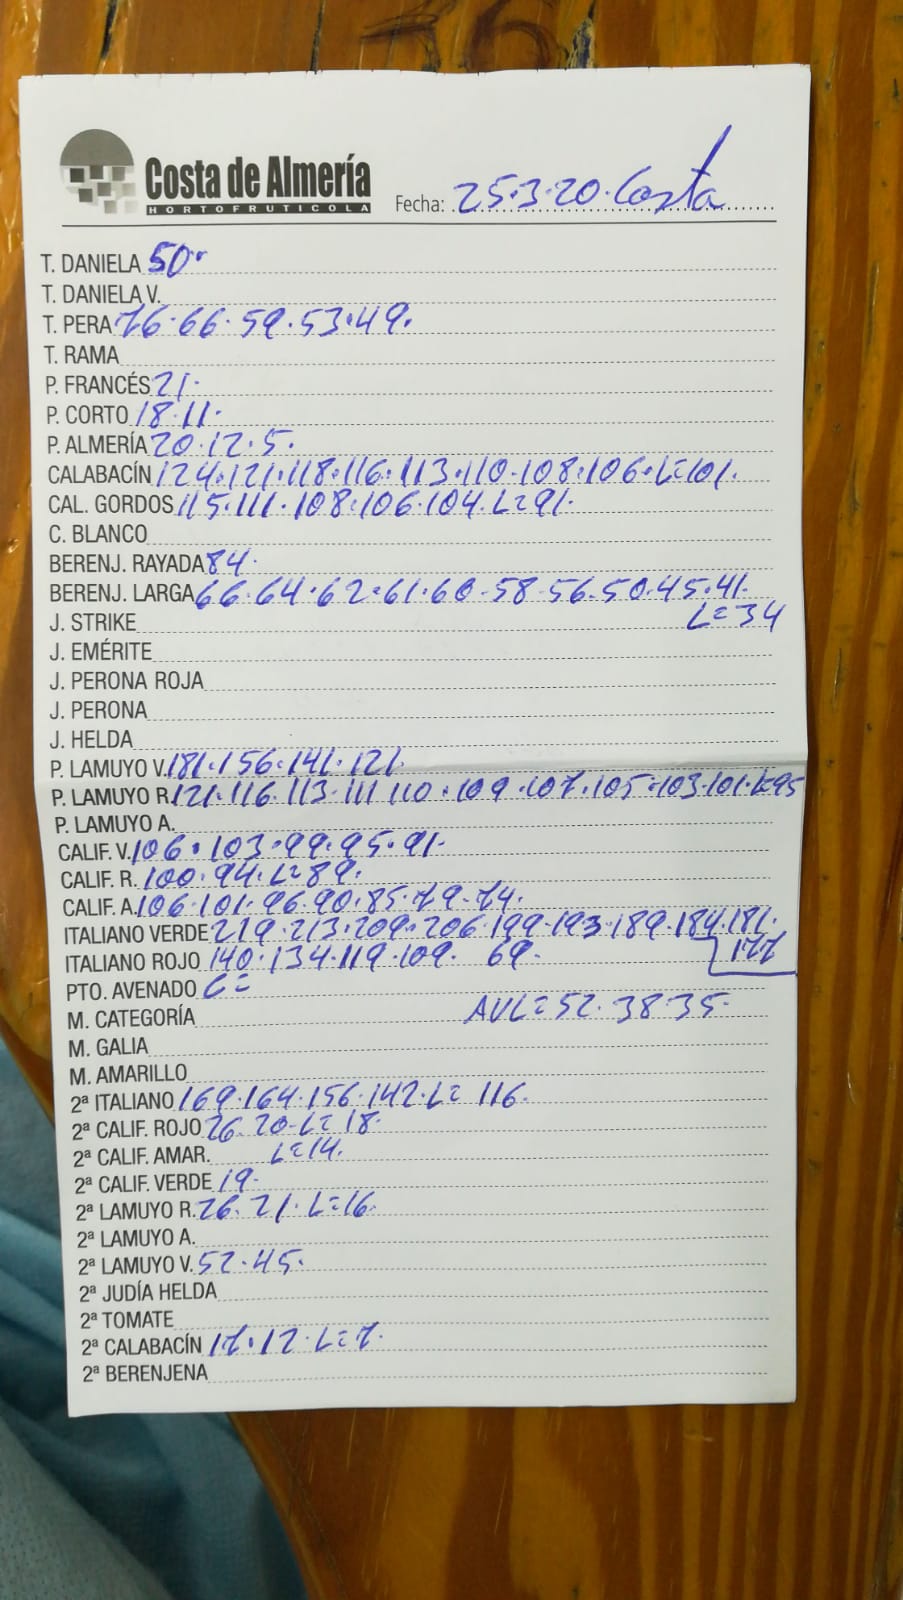 36
Costa de Almería
HORTOFRUTICOLA
Fecha: 25·3·20· Costa
T. DANIELA 50·
T. DANIELA V.
T. PERA 76·66·59·53·49·
T. RAMA
P. FRANCÉS 21·
P. CORTO 18·11·
P. ALMERÍA 20·12·5·
CALABACÍN 124·121·118·116·113·110·108·106·L=101·
CAL. GORDOS 115·111·108·106·104·L=91·
C. BLANCO
BERENJ. RAYADA 84·
BERENJ. LARGA 66·64·62·61·60·58·56·50·45·41·
J. STRIKE L=34
J. EMÉRITE
J. PERONA ROJA
J. PERONA
J. HELDA
P. LAMUYO V. 181·156·141·121·
P. LAMUYO R. 121·116·113·111·110·109·107·105·103·101·L=95
P. LAMUYO A.
CALIF. V. 106·103·99·95·91·
CALIF. R. 100·94·L=89·
CALIF. A. 106·101·96·90·85·79·74·
ITALIANO VERDE 219·213·209·206·199·193·189·184·181·
ITALIANO ROJO 140·134·119·109· 69· 177
PTO. AVENADO L=
M. CATEGORÍA AVL=52·38·35·
M. GALIA
M. AMARILLO
2ª ITALIANO 169·164·156·142·L=116·
2ª CALIF. ROJO 26·20·L=18·
2ª CALIF. AMAR. L=14·
2ª CALIF. VERDE 19·
2ª LAMUYO R. 26·21·L=16·
2ª LAMUYO A.
2ª LAMUYO V. 52·45·
2ª JUDÍA HELDA
2ª TOMATE
2ª CALABACÍN 17·12·L=7·
2ª BERENJENA